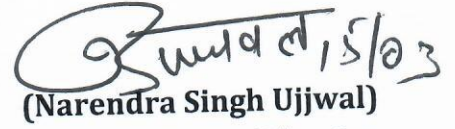 उज्जवल, 15/03
(Narendra Singh Ujjwal)